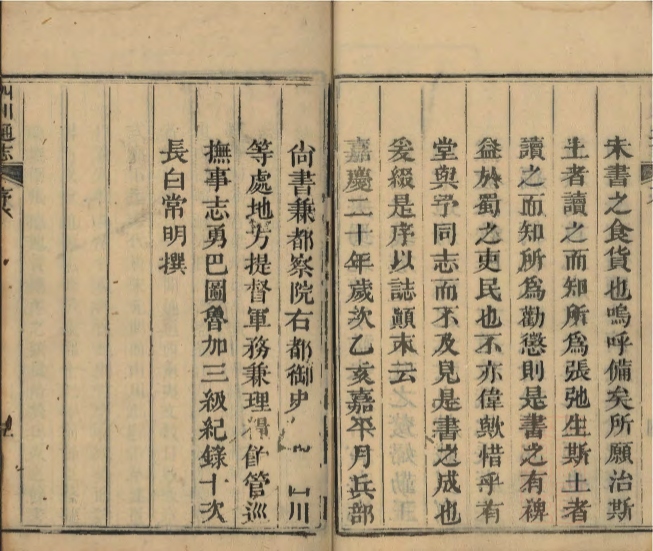 未書之食貨也嗚呼備矣所願治斯
土者讀之而知所爲張弛生斯土者
讀之而知所爲勸懲則是書之有裨
益於蜀之吏民也不亦偉歟惜乎有
堂與予同志而不及見是書之成也
爰綴是序以誌顚末云
嘉慶二十年歲次乙亥嘉平月兵部
尙書兼都察院右都御史 川
等處地方提督軍務兼理糧餉管巡
撫事志勇巴圖魯加三級紀錄十次
長白常明撰
四川通志 序